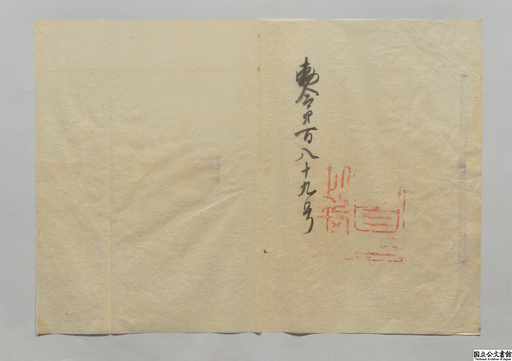 勅令第百八十九号
国立公文書館
National Archives of Japan